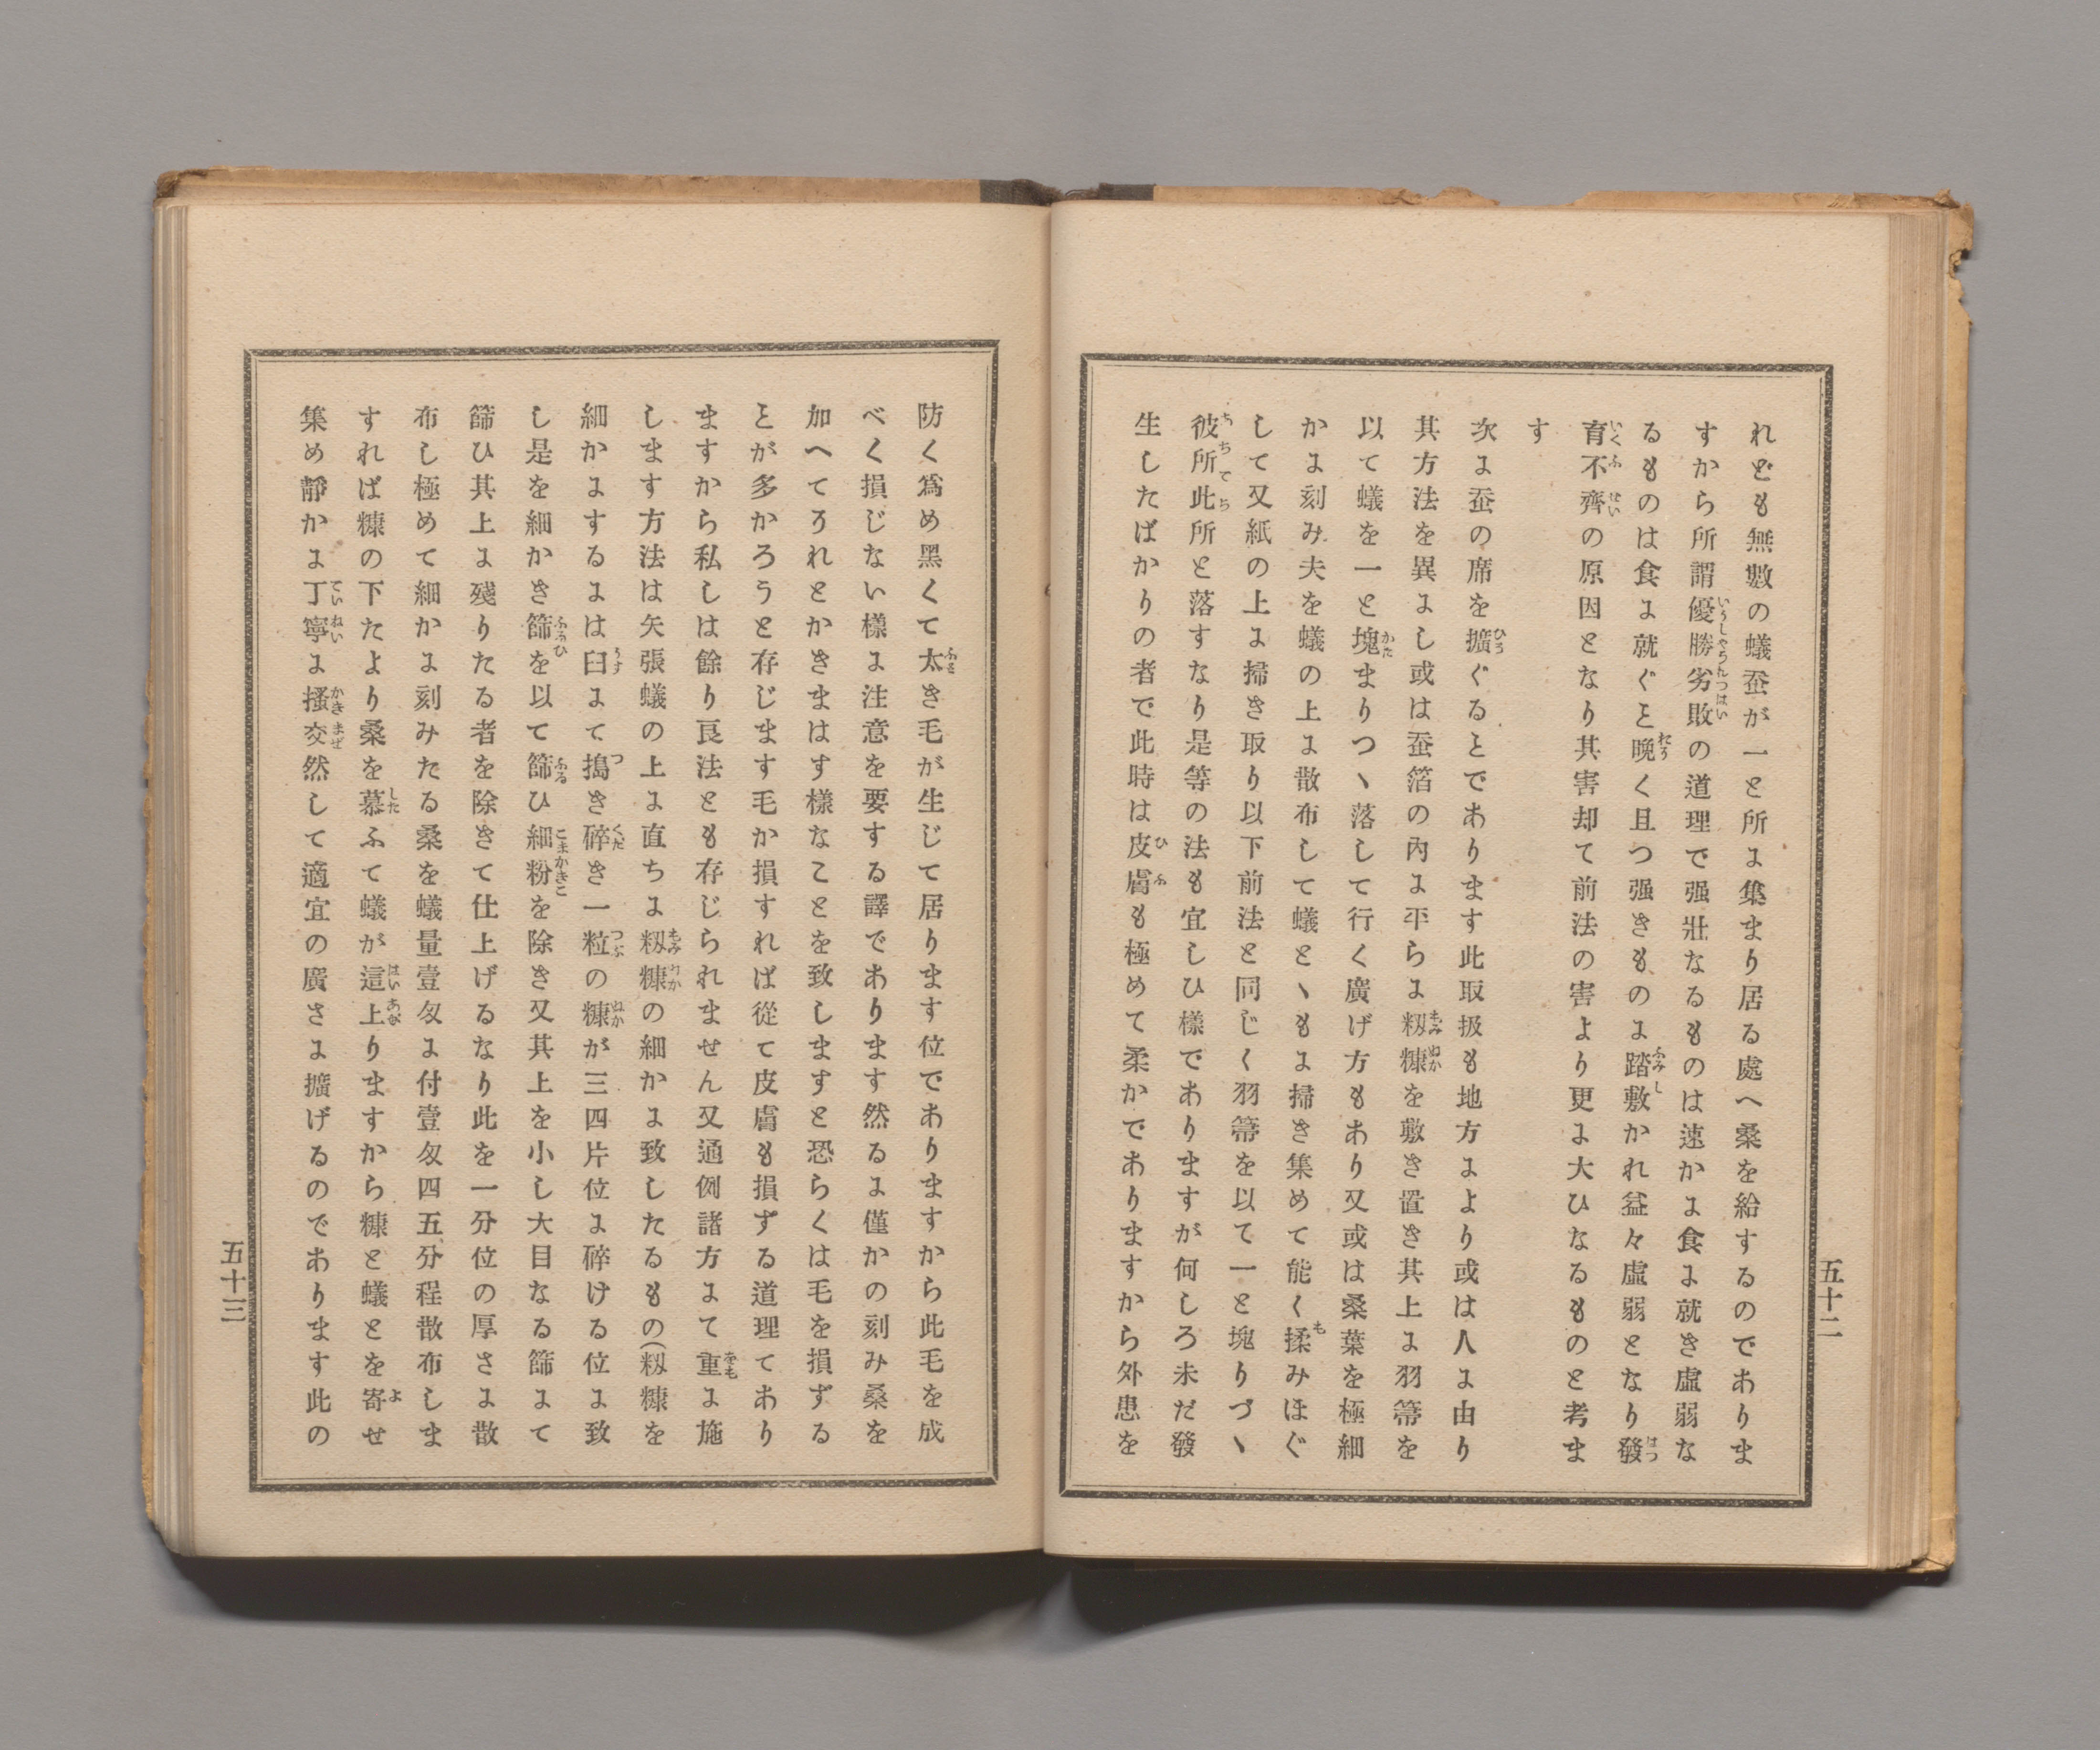 れども無數の蟻蚕が一と所に集まり居る處へ桑を給するのでありま
すから所謂優勝劣敗の道理で强壯なるものは速かに食に就き虛弱な
るものは食に就ぐと晩く且つ强きものに踏敷かれ益々虛弱となり發
育不齊の原因となり其害却て前法の害より更に大ひなるものと考ま
す
次に蚕の席を擴ぐるとであります此取扱も地方により或は人に由り
其方法を異にし或は蚕箔の內に平らに籾糠を敷き置き其上に羽箒を
以て蟻を一と塊まりつゝ落して行く廣げ方もあり又或は桑葉を極細
かに刻み夫を蟻の上に散布して蟻とゝもに掃き集めて能く揉みほぐ
して又紙の上に掃き取り以下前法と同じく羽箒を以て一と塊りづゝ
彼所此所と落すなり是等の法も宜しひ樣でありますが何しろ未だ發
生したばかりの者で此時は皮膚も極めて柔かでありますから外患を
五十二
防く爲め黑くて太き毛が生じて居ります位でありますから此毛を成
べく損じない樣に注意を要する譯であります然るに僅かの刻み桑を
加へてそれとかきまはす樣なことを致しますと恐らくは毛を損ずる
とが多かろうと存じます毛か損すれば從て皮膚も損ずる道理てあり
ますから私しは餘り良法とも存じられません又通例諸方にて重に施
します方法は矢張蟻の上に直ちに籾糠の細かに致したるもの(籾糠を
細かにするには臼にて搗き碎き一粒の糠が三四片位に碎ける位に致
し是を細かき篩を以て篩ひ細粉を除き又其上を小し大目なる篩にて
篩ひ其上に殘りたる者を除きて仕上げるなり此を一分位の厚さに散
布し極めて細かに刻みたる桑を蟻量壹匁に付壹匁四五分程散布しま
すれば糠の下たより桑を慕ふて蟻が這上りますから糠と蟻とを寄せ
集め靜かに丁寧に搔交然して適宜の廣さに擴げるのであります此の
五十三